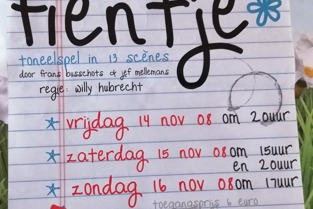 tientje
toneelspel in 13 scènes
door frans busschots & jef mellemans
regie: willy hubrecht
* vrijdag 14 nov 08 om 20uur
* zaterdag 15 nov 08 om 15uur
en 20uur
* zondag 16 nov 08 om 17uur
toegangsprijs 6 euro